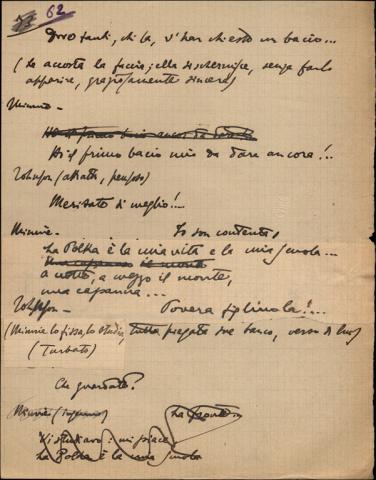 62
Dove tanti, chi sa, v'han chiesto un bacio...
(le accosta la faccia; ella si schermisce, senza farlo
apparire, graziosamente sincera)
Minnie -
Ho il primo bacio
Ho il primo bacio mio da dare ancora!..
Johnson (astratto, pensoso)
Meritate di meglio!..
Minnie - Io son contenta
La Polka è la mia vita e la mia scuola...
Una capanna il monte
a notte, a mezzo il monte,
una capanna...
Johnson - Povera figliuola!...
(Minnie lo fissa, lo studia, tutta piegata sul banco, verso di lui)
(Turbato)
Che guardate?
Minnie
Vi studiavo: mi piace
La Polka è la mia scuola